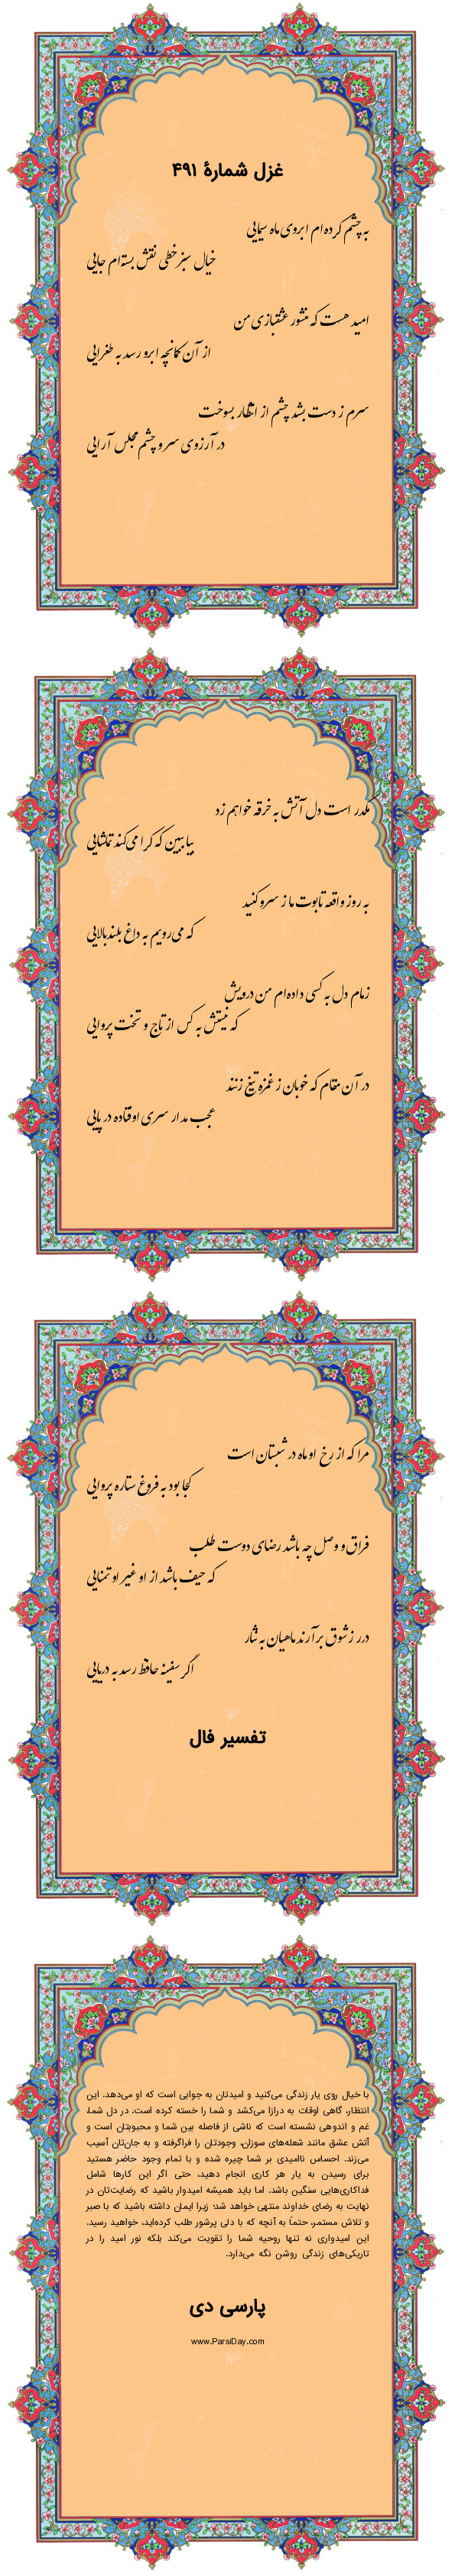 غزل شمارهٔ ۴۹۱
به چشم کرده‌ام ابروی ماه سیمایی
خیال سبز خطی نقش بسته‌ام جایی
امید هست که منشور عشقبازی من
از آن کمانچه ابرو رسد به طغرایی
سرم ز دست بشد چشم از انتظار بسوخت
در آرزوی سر و چشم مجلس آرایی
مکدر است دل آتش به خرقه خواهم زد
بیا ببین که کرا می‌کند تماشایی
به روز واقعه تابوت ما ز سرو کنید
که می‌رویم به داغ بلندبالایی
زمام دل به کسی داده‌ام من درویش
که نیستش به کس از تاج و تخت پروایی
در آن مقام که خوبان ز غمزه تیغ زنند
عجب مدار سری اوفتاده در پایی
مرا که از رخ او ماه در شبستان است
کجا بود به فروغ ستاره پروایی
فراق و وصل چه باشد رضای دوست طلب
که حیف باشد از او غیر او تمنایی
درر ز شوق برآرند ماهیان به نثار
اگر سفینه حافظ رسد به دریایی
تفسیر فال
با خیال روی یار زندگی می‌کنید و امیدتان به جوابی است که او می‌دهد. این
انتظار، گاهی اوقات به درازا می‌کشد و شما را خسته کرده است. در دل شما،
غم و اندوهی نشسته است که ناشی از فاصله بین شما و محبوبتان است و
آتش عشق مانند شعله‌های سوزان، وجودتان را فراگرفته و به جان‌تان آسیب
می‌زند. احساس ناامیدی بر شما چیره شده و با تمام وجود حاضر هستید
برای رسیدن به یار هر کاری انجام دهید، حتی اگر این کارها شامل
فداکاری‌هایی سنگین باشد. اما باید همیشه امیدوار باشید که رضایت‌تان در
نهایت به رضای خداوند منتهی خواهد شد؛ زیرا ایمان داشته باشید که با صبر
و تلاش مستمر، حتماً به آنچه که با دلی پرشور طلب کرده‌اید، خواهید رسید.
این امیدواری نه تنها روحیه شما را تقویت می‌کند بلکه نور امید را در
تاریکی‌های زندگی روشن نگه می‌دارد.
پارسی دی
www.ParsiDay.com